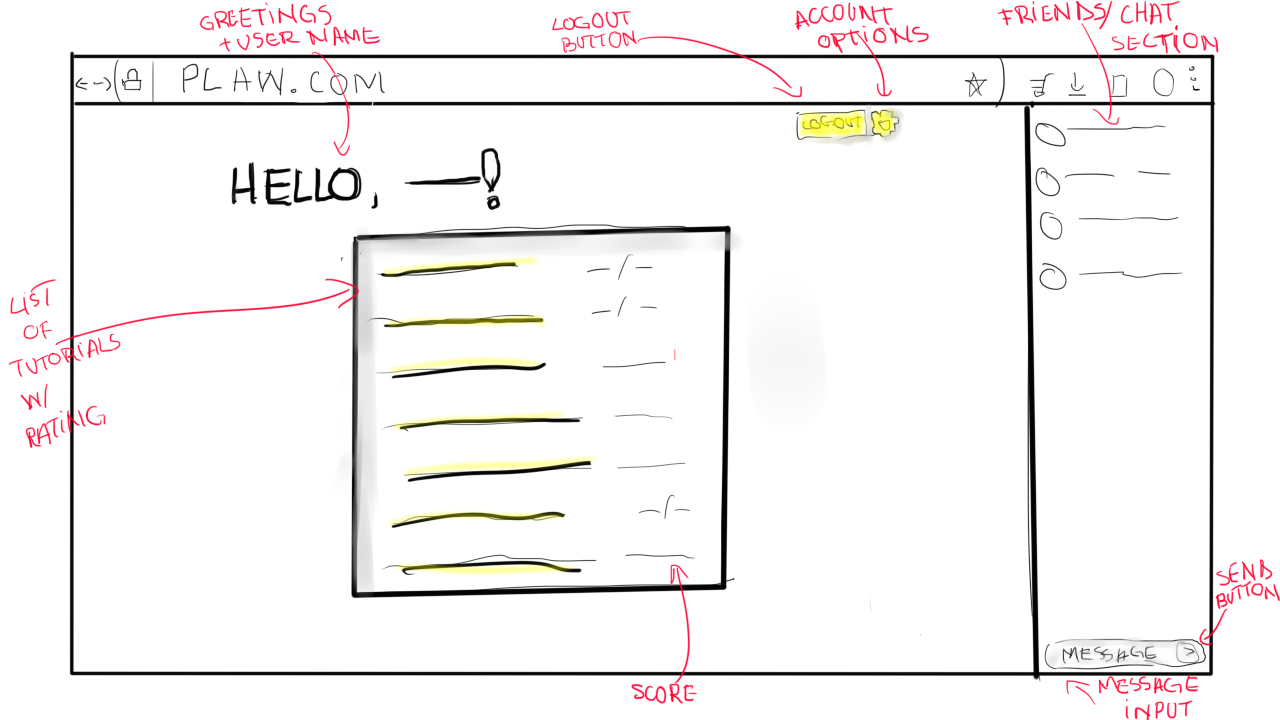 GREETINGS
+ USER NAME
LOGOUT
BUTTON
ACCOUNT
OPTIONS
FRIENDS/CHAT
SECTION
PLAW.COM
LOGOUT
HELLO, —!
-/-
-/-
LIST
OF
TUTORIALS
W/
RATING
-/-
SCORE
SEND
BUTTON
MESSAGE >
MESSAGE
INPUT